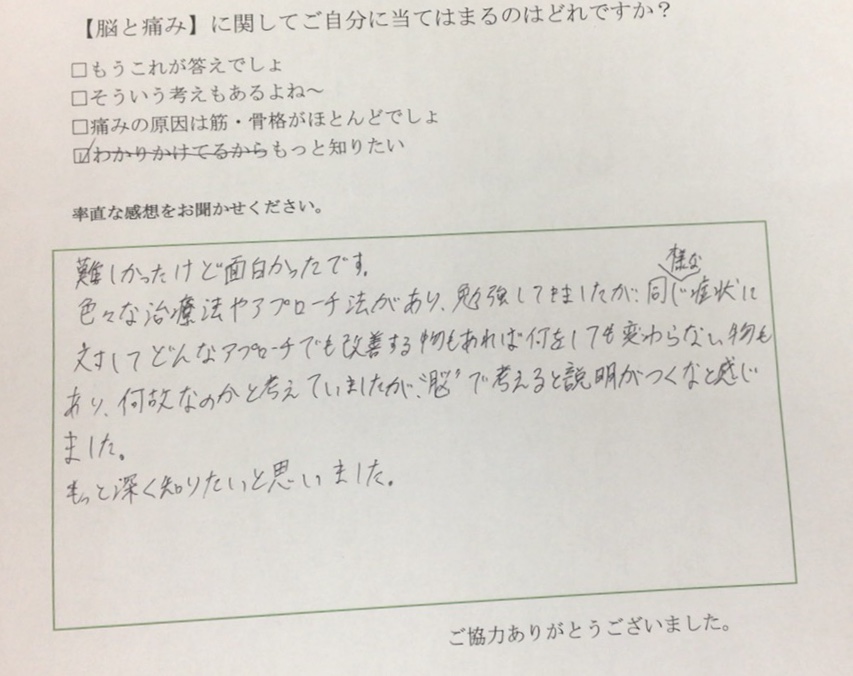 【脳と痛み】に関してご自分に当てはまるのはどれですか？
□もうこれが答えでしょ
□そういう考えもあるよね～
□痛みの原因は筋・骨格がほとんどでしょ
☑わかりかけてるからもっと知りたい
率直な感想をお聞かせください。
難しかったけど面白かったです。
様な
色々な治療法やアプローチ法があり、勉強してきましたが、同じ症状に
対してどんなアプローチでも改善する物もあれば何をしても変わらない物も
あり、何故なのかと考えていましたが、"脳"で考えると説明がつくなと感じ
ました。
もっと深く知りたいと思いました。
ご協力ありがとうございました。